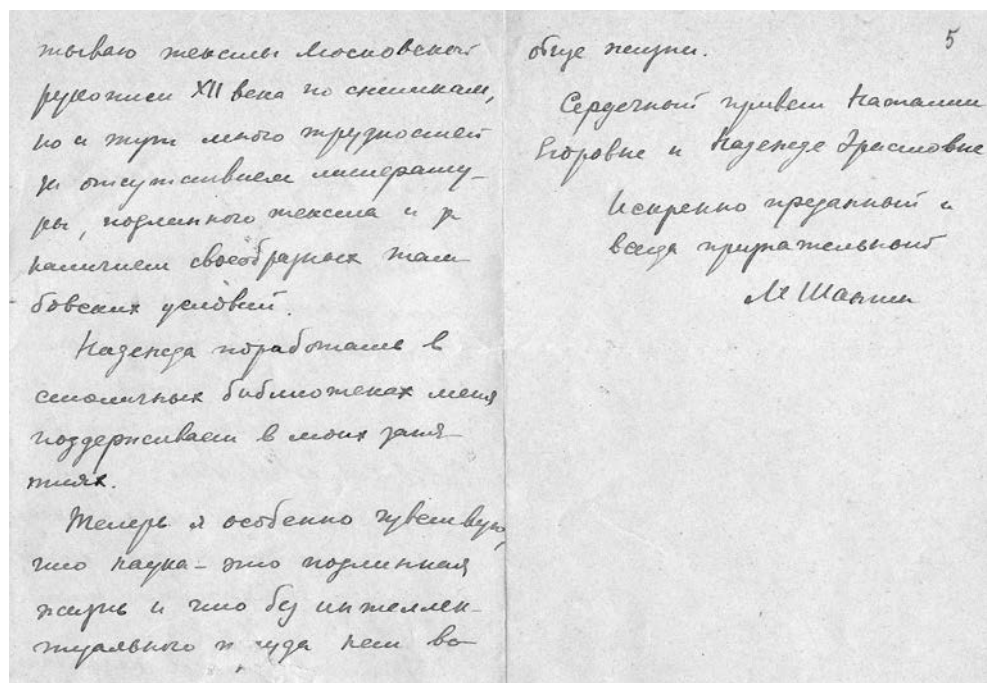 тываю тексты Московской
рукописи XII века по снимкам,
но и тут много трудностей
за отсутствием литерату-
ры, подлинного текста и за
наличием своеобразных там
бовских условий.
Надежда поработать в
столичных библиотеках меня
поддерживает в моих заня-
тиях.
Теперь я особенно чувствую,
что наука – это подлинная
жизнь и что без интеллек-
туального труда нет во-
5
обще жизни.
Сердечный привет Наталии
Егоровне и Надежде Эрастовне
Искренно преданный и
всегда признательный
М Шанин